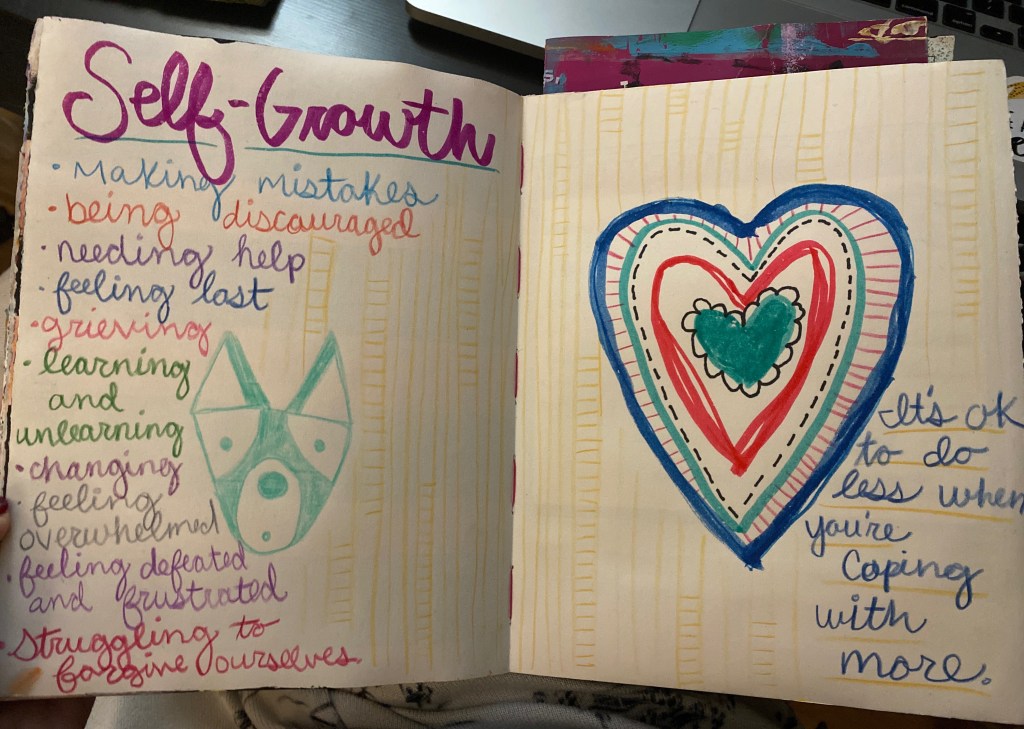 Self-Growth
• Making mistakes
• being discouraged
• needing help
• feeling lost
• grieving
• learning
and
unlearning
• changing
• feeling
overwhelmed
• feeling defeated
and frustrated
• Struggling to
forgive ourselves.
It's ok
to do
less when
you're
Coping
with
more.